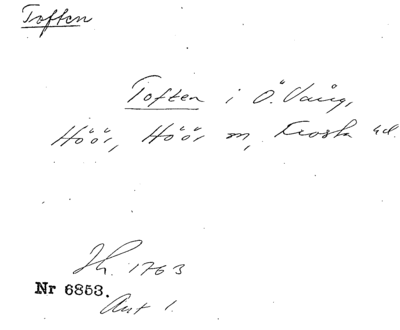 Toften
Toften i Ö. Vång,
Höör, Höör m, Frosta hd.
Jh. 1763
Nr 6853.
Ant 1.